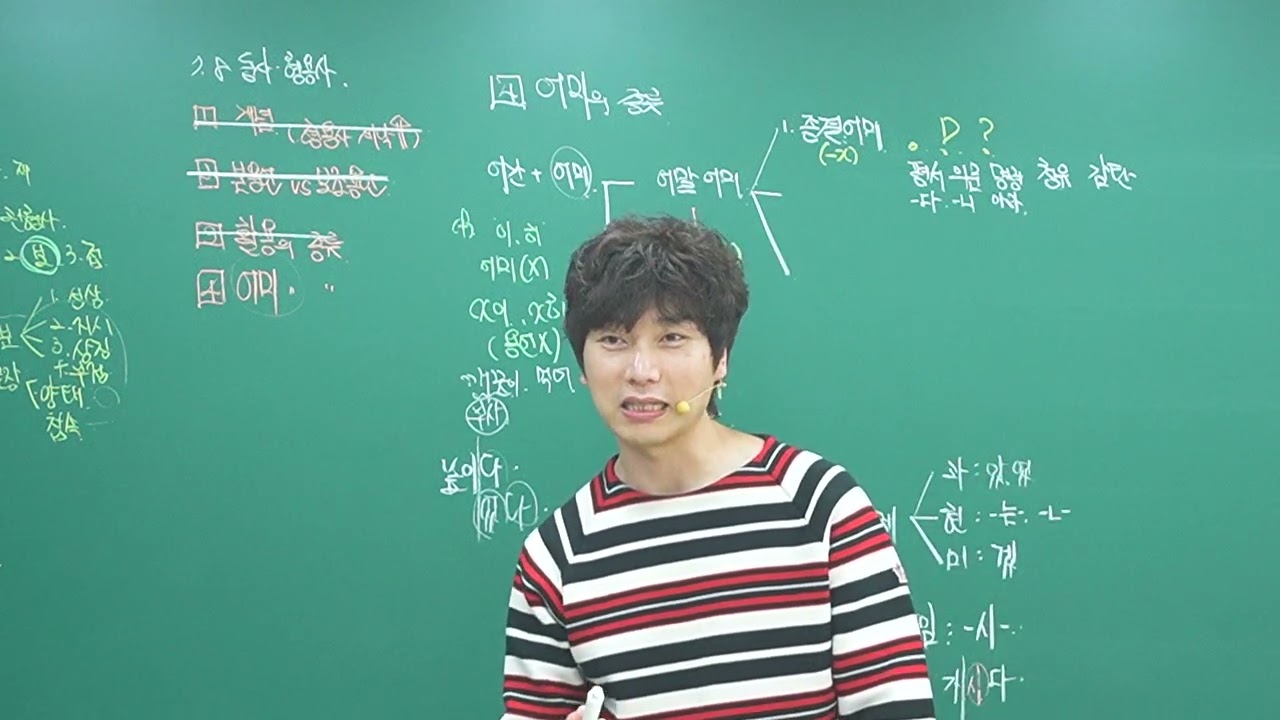 재
관형사
2. 보 3. 접
1. 성상
2. 지시
3. 상징
+ 부정
양태
접속
동사·형용사.
1 개념 (형용사 ⇑)
2 본용언 vs 보조용언
3 활용의 종류
4 어미 〃
4 어미의 종류
어간 + 어미
이, 히
어미(X)
X이, X히
(용언X)
깨끗이, 먹어
부사
높이다.
었다.
어말 어미
1. 종결어미
(-X)
. ? ?
평서 의문 명령 청유 감탄
-다. -니 아라
과 : 았.었
현 : -는-. -ㄴ-
미 : 겠
: -시-
계시다.